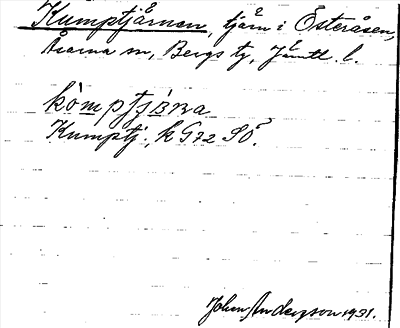 Kumptjårnen, tjärn i Österåsen,
Åsarna sn, Bergs tg, Jämtl. l.
kòmpʃɈɑ̈ɳa
Kumptj., k G72 SÖ.
Johan Anderzson 1931.